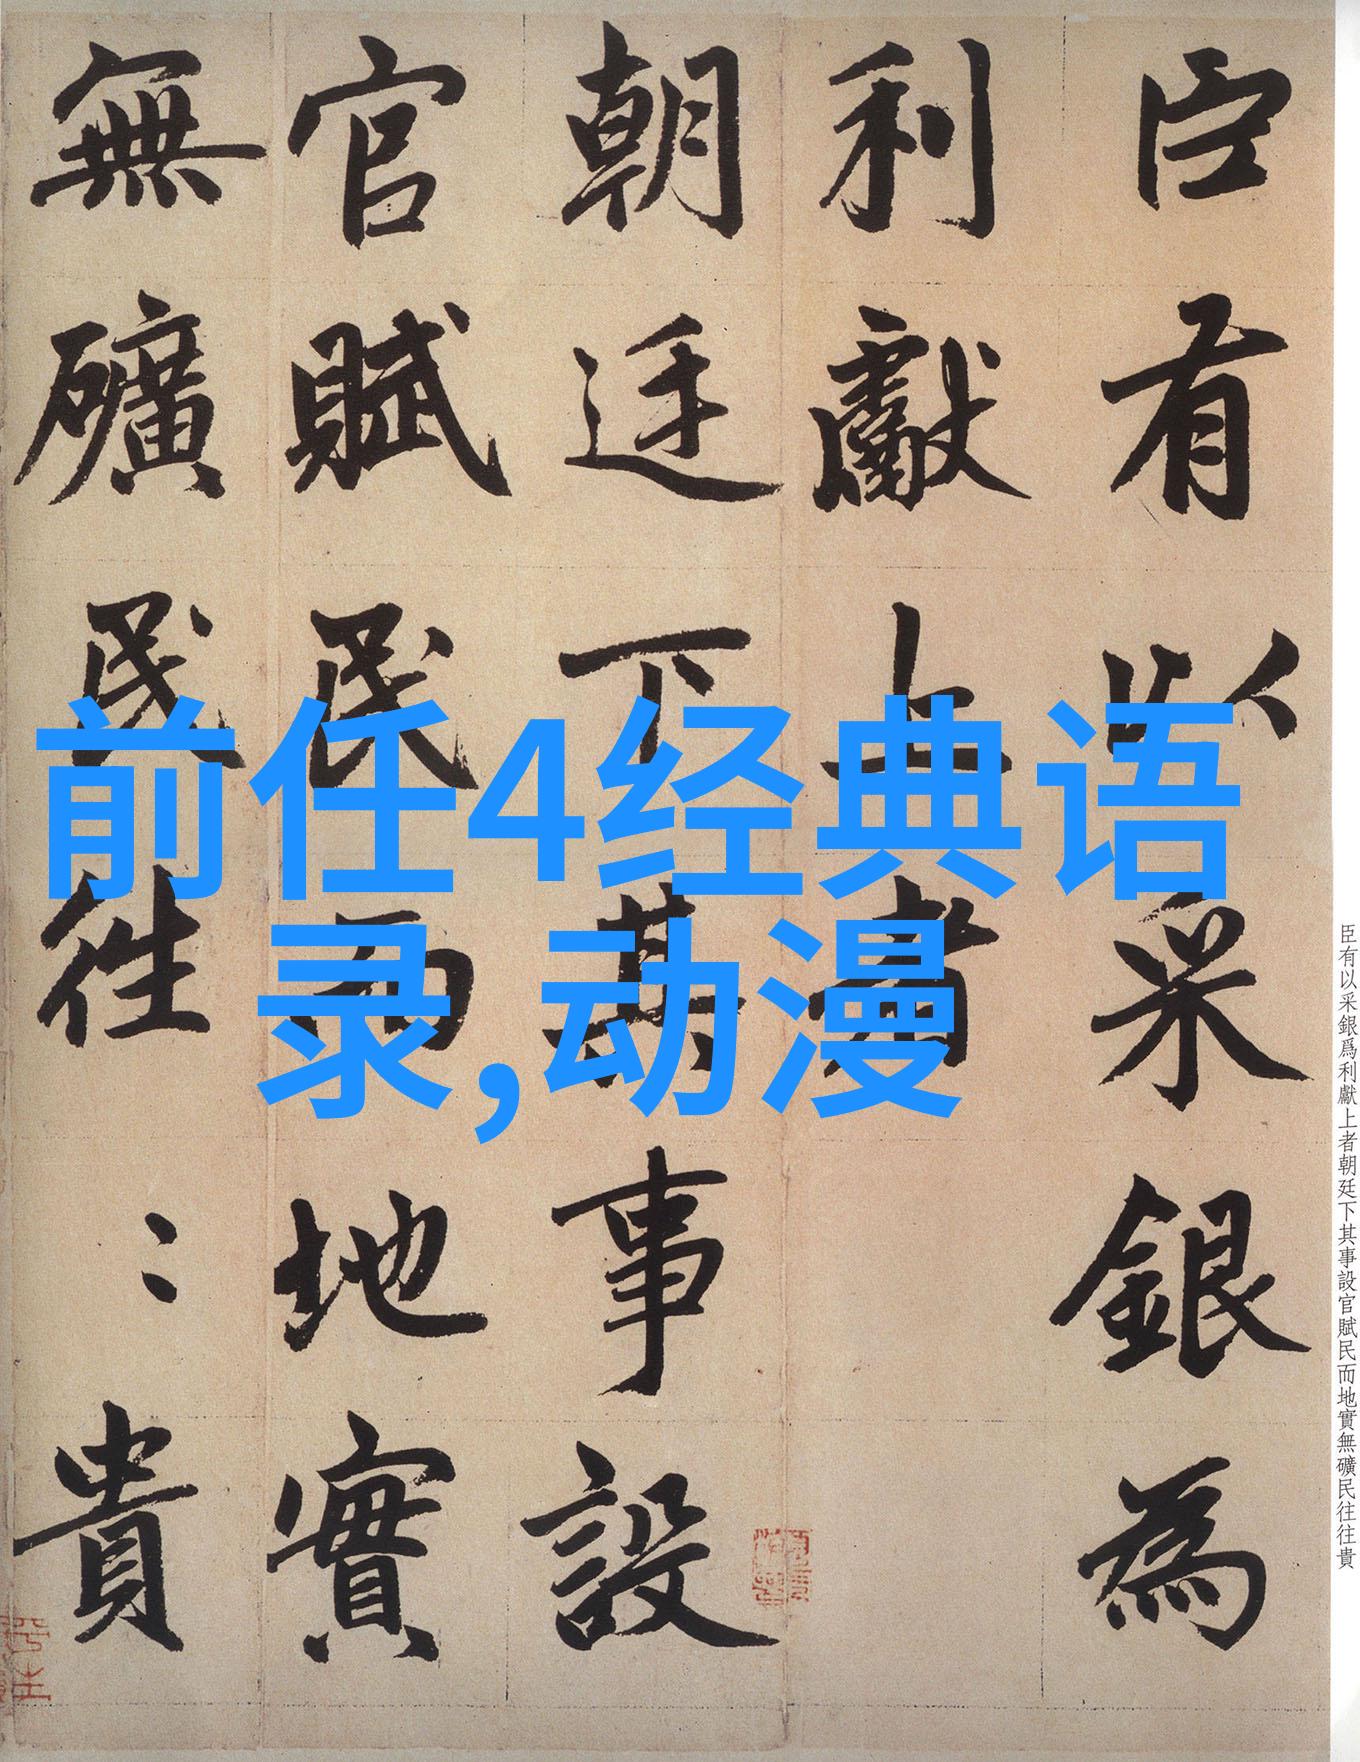 臣有以采銀為
利獻上者
朝廷下其事設
官賦民而地實
無礦民往〻貴
前任4经典语
录,动漫
臣有以采銀爲利獻上者朝廷下其事設官賦民而地實無礦民往往貴